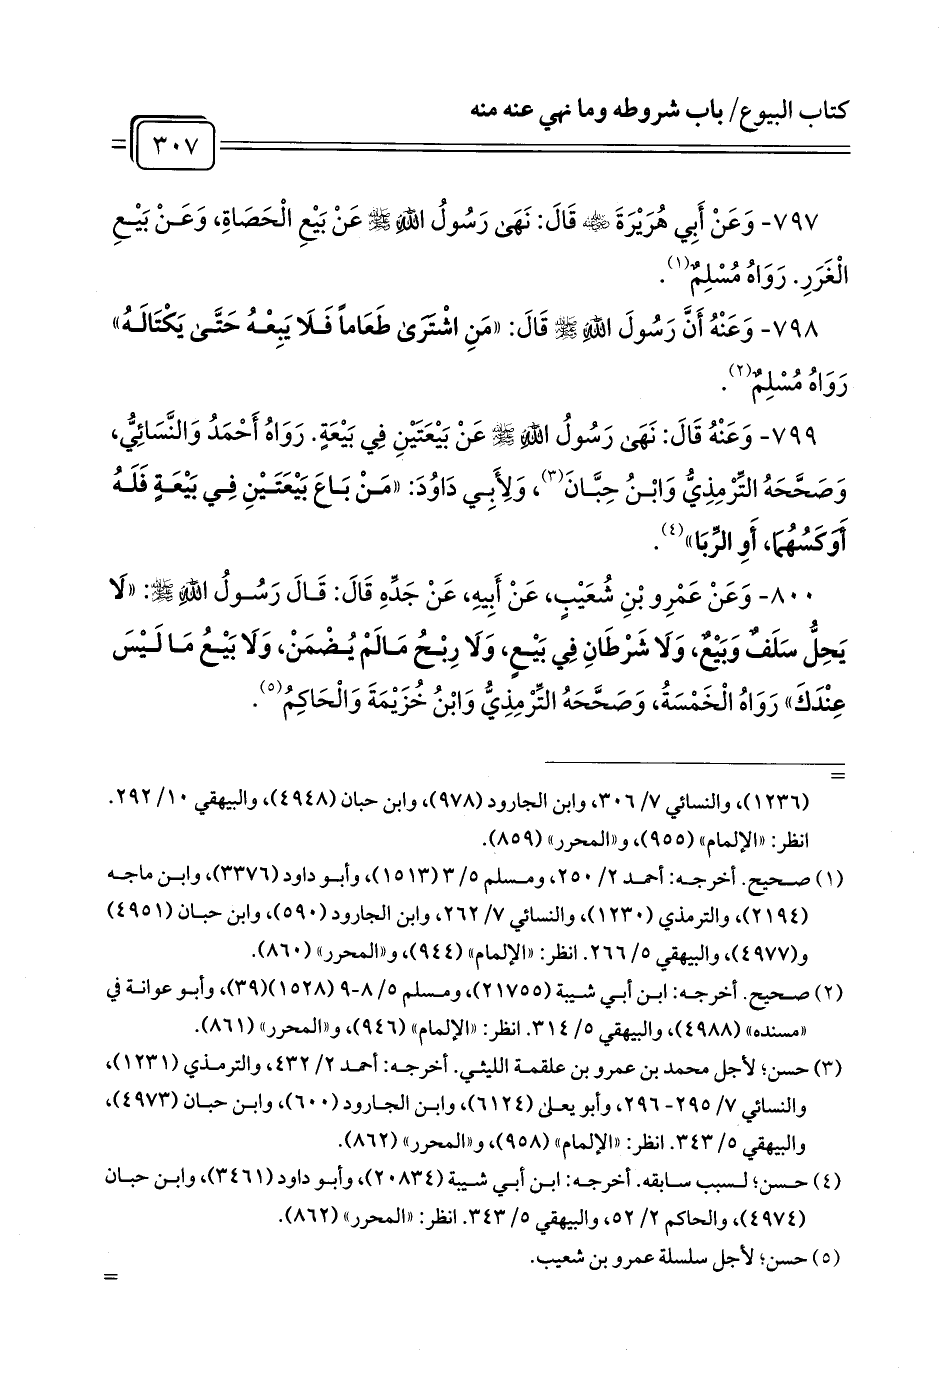 كتاب البيوع/ باب شروطه وما نهي عنه منه
٣٠٧
٧٩٧- وَعَنْ أَبِي هُرَيْرَةَ ﵁ قَالَ: نَهَى رَسُولُ اللهِ ﷺ عَنْ بَيْعِ الْحَصَاةِ، وَعَنْ بَيْعِ
الْغَرَرِ. رَوَاهُ مُسْلِمٌ(١).
٧٩٨- وَعَنْهُ أَنَّ رَسُولَ اللهِ ﷺ قَالَ: «مَنِ اشْتَرَى طَعَاماً فَلَا يَبِعْهُ حَتَّى يَكْتَالَهُ»
رَوَاهُ مُسْلِمٌ(٢).
٧٩٩- وَعَنْهُ قَالَ: نَهَى رَسُولُ اللهِ ﷺ عَنْ بَيْعَتَيْنِ فِي بَيْعَةٍ. رَوَاهُ أَحْمَدُ وَالنَّسَائِيُّ،
وَصَحَّحَهُ التِّرْمِذِيُّ وَابْنُ حِبَّانَ(٣)، وَلِأَبِي دَاوُدَ: «مَنْ بَاعَ بَيْعَتَيْنِ فِي بَيْعَةٍ فَلَهُ
أَوَكَسُهُمَا، أَوِ الرِّبَا»(٤).
٨٠٠- وَعَنْ عَمْرِو بْنِ شُعَيْبٍ، عَنْ أَبِيهِ، عَنْ جَدِّهِ قَالَ: قَالَ رَسُولُ اللهِ ﷺ: «لَا
يَحِلُّ سَلَفٌ وَبَيْعٌ، وَلَا شَرْطَانِ فِي بَيْعٍ، وَلَا رِبْحُ مَالَمْ يُضْمَنْ، وَلَا بَيْعُ مَا لَيْسَ
عِنْدَكَ» رَوَاهُ الْخَمْسَةُ، وَصَحَّحَهُ التِّرْمِذِيُّ وَابْنُ خُزَيْمَةَ وَالْحَاكِمُ(٥).
=
(١٢٣٦)، والنسائي ٧/ ٣٠٦، وابن الجارود (٩٧٨)، وابن حبان (٤٩٤٨)، والبيهقي ١٠/ ٢٩٢.
انظر: «الإلمام» (٩٥٥)، و«المحرر» (٨٥٩).
(١) صحيح. أخرجه: أحمد ٢/ ٢٥٠، ومسلم ٥/ ٣ (١٥١٣)، وأبو داود (٣٣٧٦)، وابن ماجه
(٢١٩٤)، والترمذي (١٢٣٠)، والنسائي ٧/ ٢٦٢، وابن الجارود (٥٩٠)، وابن حبان (٤٩٥١)
و(٤٩٧٧)، والبيهقي ٥/ ٢٦٦. انظر: «الإلمام» (٩٤٤)، و«المحرر» (٨٦٠).
(٢) صحيح. أخرجه: ابن أبي شيبة (٢١٧٥٥)، ومسلم ٥/ ٨-٩ (١٥٢٨)(٣٩)، وأبو عوانة في
«مسنده» (٤٩٨٨)، والبيهقي ٥/ ٣١٤. انظر: «الإلمام» (٩٤٦)، و«المحرر» (٨٦١).
(٣) حسن؛ لأجل محمد بن عمرو بن علقمة الليثي. أخرجه: أحمد ٢/ ٤٣٢، والترمذي (١٢٣١)،
والنسائي ٧/ ٢٩٥-٢٩٦، وأبو يعلى (٦١٢٤)، وابن الجارود (٦٠٠)، وابن حبان (٤٩٧٣)،
والبيهقي ٥/ ٣٤٣. انظر: «الإلمام» (٩٥٨)، و«المحرر» (٨٦٢).
(٤) حسن؛ لسبب سابقه. أخرجه: ابن أبي شيبة (٢٠٨٣٤)، وأبو داود (٣٤٦١)، وابن حبان
(٤٩٧٤)، والحاكم ٢/ ٥٢، والبيهقي ٥/ ٣٤٣. انظر: «المحرر» (٨٦٢).
(٥) حسن؛ لأجل سلسلة عمرو بن شعيب.
=